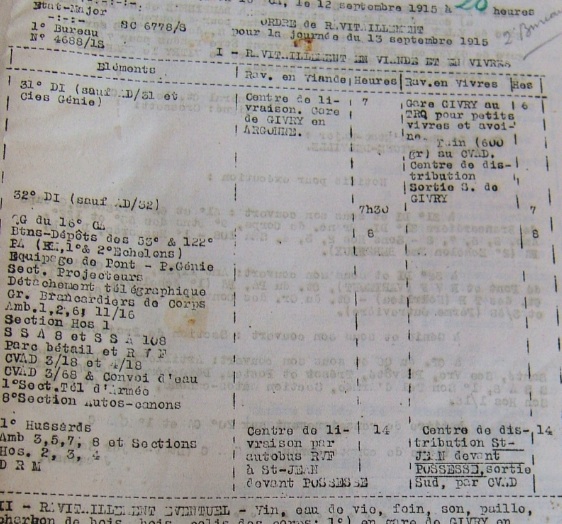 le 12 septembre 1915 à 20 heures
Etat-Major
1° Bureau SC 6778/8 ORDRE de RAVITAILLEMENT
N° 4688/1S pour la journée du 13 septembre 1915 2° Bureau
I - RAVITAILLEMENT EN VIANDE ET EN VIVRES
Eléments Rav. en Viande Heures Rav. en Vivres Hes
31° DI (sauf AD/31 et Centre de li- 7 Gare GIVRY au 6
Cies Génie) vraison. Gare TRQ pour petits
de GIVRY en vivres et avoi-
ARGONNE. ne
Foin (600
gr) au CVAD.
Centre de dis-
tribution
Sortie S. de
GIVRY
32° DI (sauf AD/32)
7h30 7
QG du 16° CA
Btns-Dépôts des 53° & 122° 8 8
PA (1°& 2°Echelons)
Equipage de Pont - P.Génie
Sect. Projecteurs
Détachement télégraphique
Gr. Brancardiers de Corps
Amb.1,2,6, 11/16
Section Hos 1
S S A 8 et SS A 108
Parc bétail et R V F
CVAD 3/18 et 4/18
CVAD 3/68 & Convoi d'eau
1°Sect.Tél d'Armée
8°Section Autos-canons
1° Hussards Centre de li- 14 Centre de dis- 14
Amb 3,5,7, 8 et Sections vraison par tribution St-
Hos. 2, 3, 4 autobus RVF JEAN devant
D R M à St-JEAN POSSESSE,sortie
devant POSSESSE Sud, par CVAD
II - RAVITAILLEMENT EVENTUEL - Vin, eau de vie, foin, son, paille,
charbon de bois, bois, colis des corps: 1°) en gare de GIVRY en